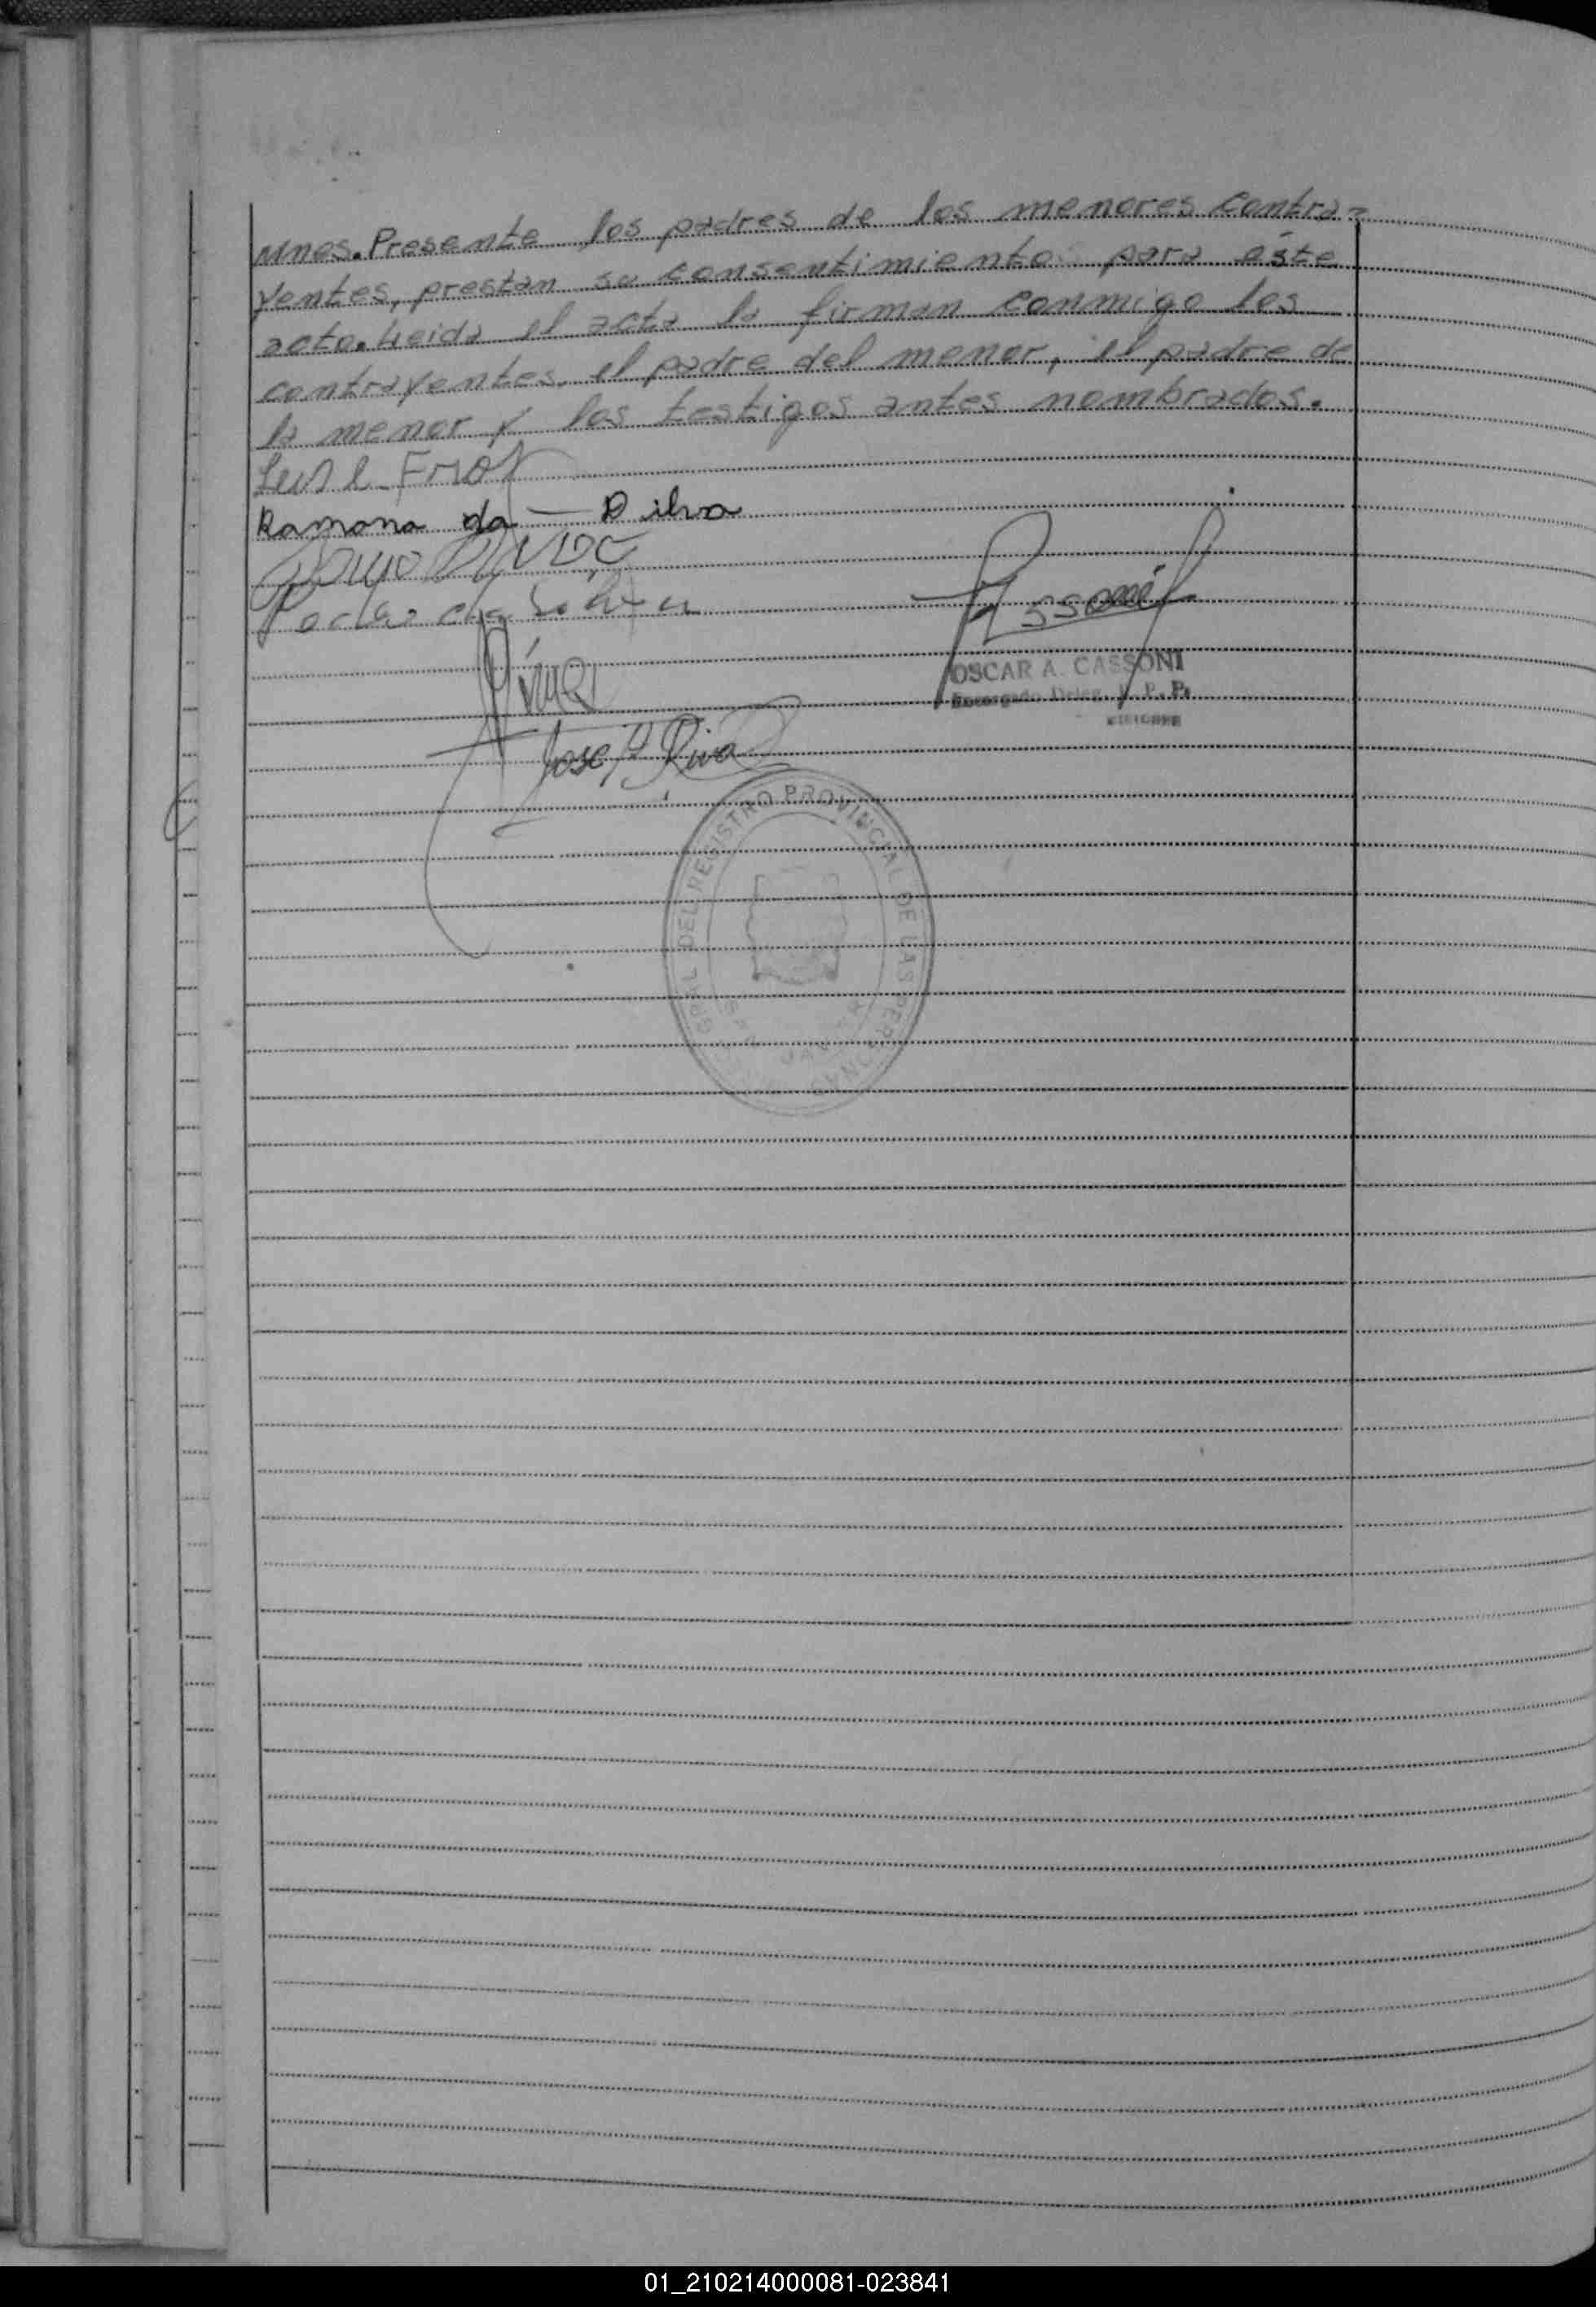 Mnes. Presente los padres de los menores contra-
yentes, prestan su consentimiento para éste
acto. Leida el acta la firman conmigo los
contrayentes, el padre del menor, el padre de
la menor y los testigos antes nombrados.
Ramona da - D silva
OSCAR A. CASSONI
Encargado Deleg. R. P. P.
Jose Riva
GRAL DEL REGISTRO PROVINCIAL DE LAS PERSONAS
01_210214000081-023841